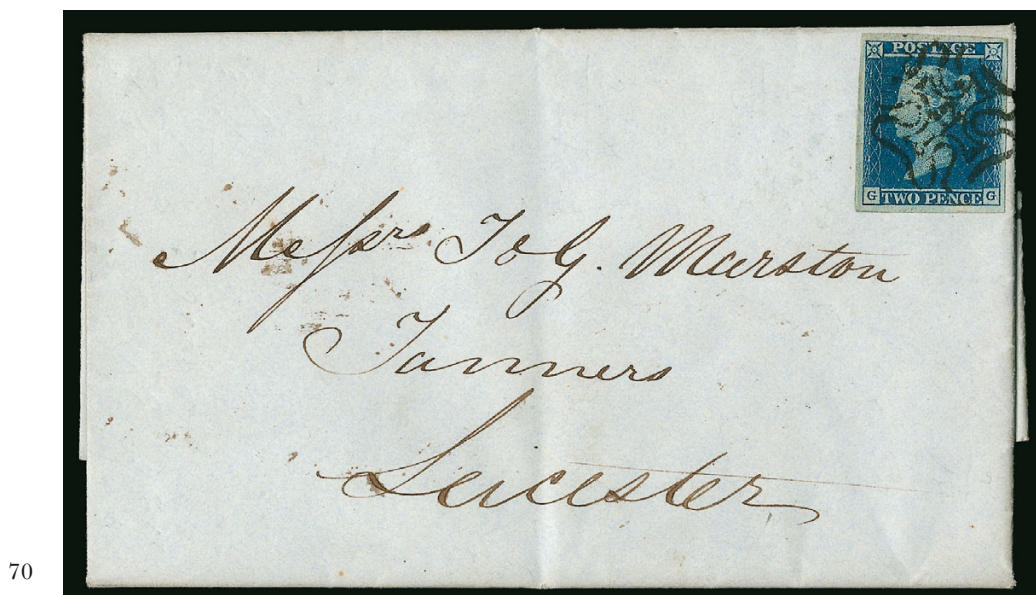 POSTAGE
G TWO PENCE G
Messrs J & G. Marston
Tanners
Leicester
70